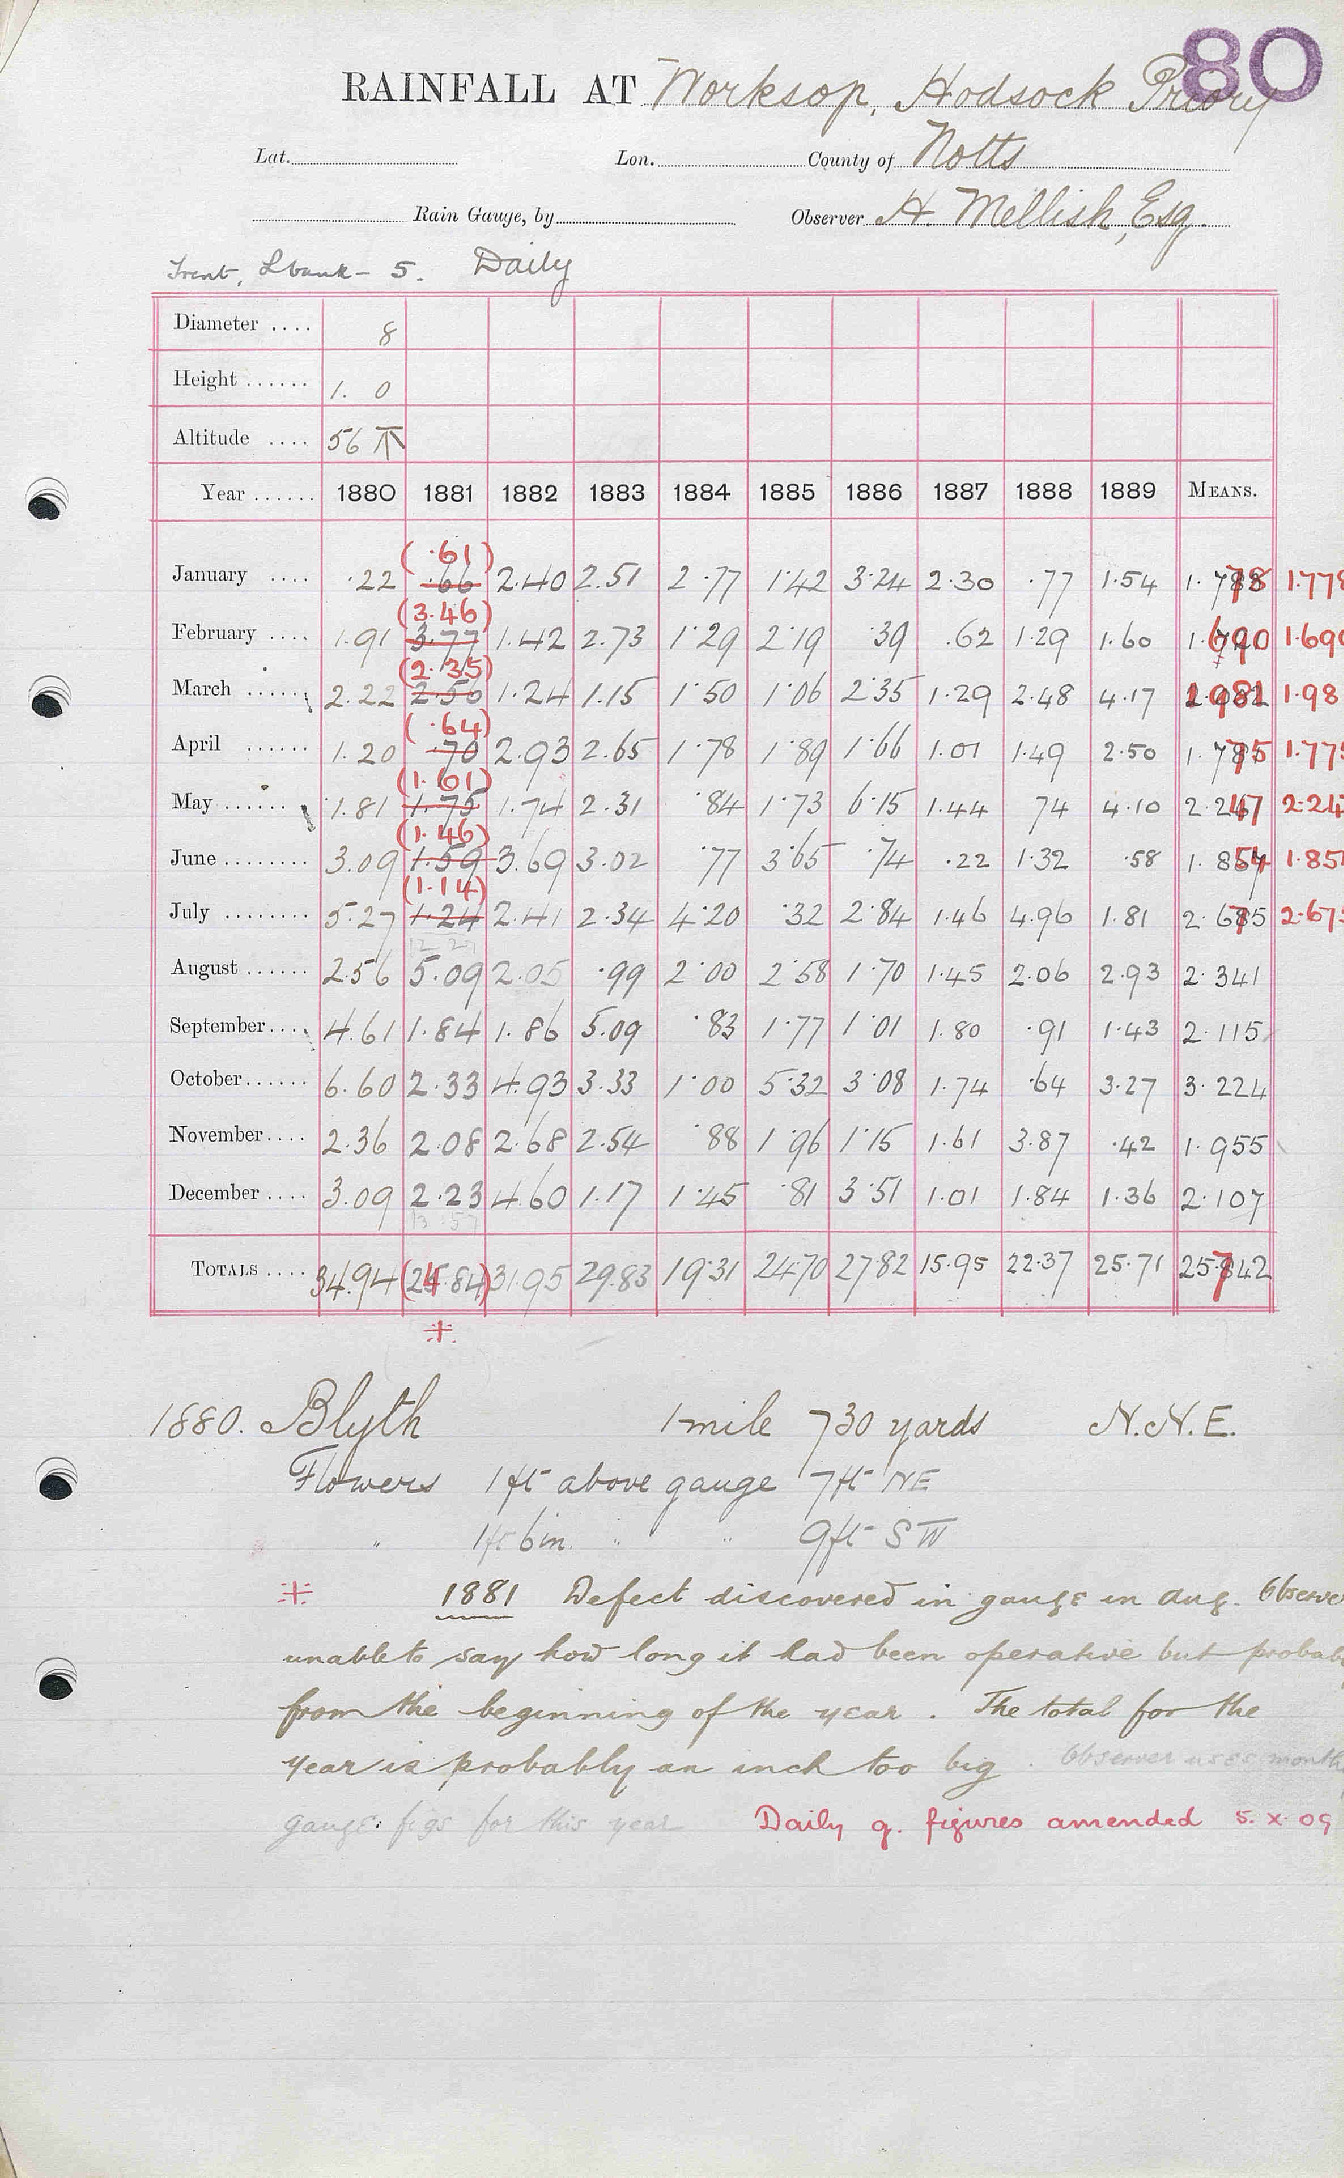 80
RAINFALL AT Worksop, Hodsock Priory
Lat. Lon. County of Notts
Rain Gauge, by Observer H. Mellish, Esq.
Trent, L bank - 5. Daily
Diameter .... 8
Height ...... 1. 0
Altitude .... 56 T
Year ...... 1880 1881 1882 1883 1884 1885 1886 1887 1888 1889 MEANS.
(.61)
January .... .22 .66 2.40 2.51 2.77 1.42 3.24 2.30 .77 1.54 1.78 1.778
(3.46)
February .... 1.91 3.77 1.42 2.73 1.29 2.19 .39 .62 1.29 1.60 1.690 1.690
(2.35)
March ...... 2.22 2.56 1.24 1.15 1.50 1.06 2.35 1.29 2.48 4.17 1.981 1.98
(.64)
April ...... 1.20 .70 2.93 2.65 1.78 1.89 1.66 1.01 1.49 2.50 1.775 1.775
(1.61)
May ...... 1.81 1.75 1.74 2.31 .84 1.73 6.15 1.44 74 4.10 2.247 2.247
(1.46)
June ........ 3.09 1.59 3.69 3.02 .77 3.65 .74 .22 1.32 .58 1.854 1.854
(1.14)
July ........ 5.27 1.24 2.41 2.34 4.20 .32 2.84 1.46 4.96 1.81 2.675 2.675
12 27
August ...... 2.56 5.09 2.05 .99 2.00 2.58 1.70 1.45 2.06 2.93 2.341
September.... 4.61 1.84 1.86 5.09 .83 1.77 1.01 1.80 .91 1.43 2.115
October...... 6.60 2.33 4.93 3.33 1.00 5.32 3.08 1.74 .64 3.27 3.224
November.... 2.36 2.08 2.68 2.54 .88 1.96 1.15 1.61 3.87 .42 1.955
December .... 3.09 2.23 4.60 1.17 1.45 .81 3.51 1.01 1.84 1.36 2.107
13 57
TOTALS .... 34.94 (24.84) 31.95 29.83 19.31 24.70 27.82 15.95 22.37 25.71 25.742
1880. Blyth 1 mile 730 yards N.N.E.
Flowers 1 ft above gauge 7 ft NE
" 1 ft 6 in " " 9 ft SW
1881 Defect discovered in gauge in Aug. Observer
unable to say how long it had been operative but probably
from the beginning of the year. The total for the
year is probably an inch too big. Observer uses month
gauge figs for this year Daily g. figures amended 5.x.09